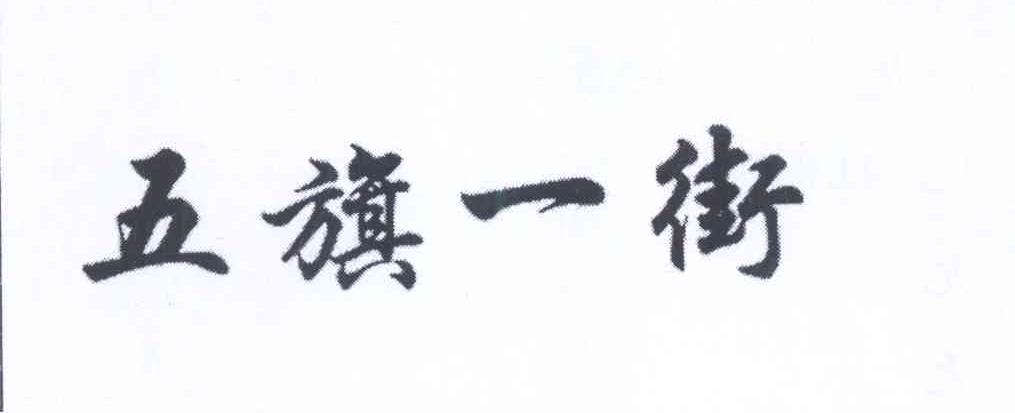 五旗一街